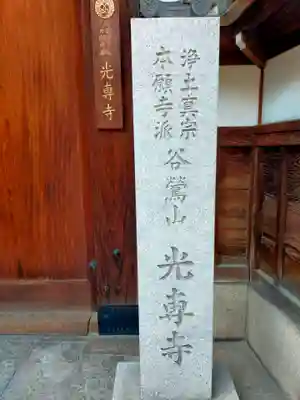 浄土真宗
本願寺派
谷鶯山
光專寺
光專寺